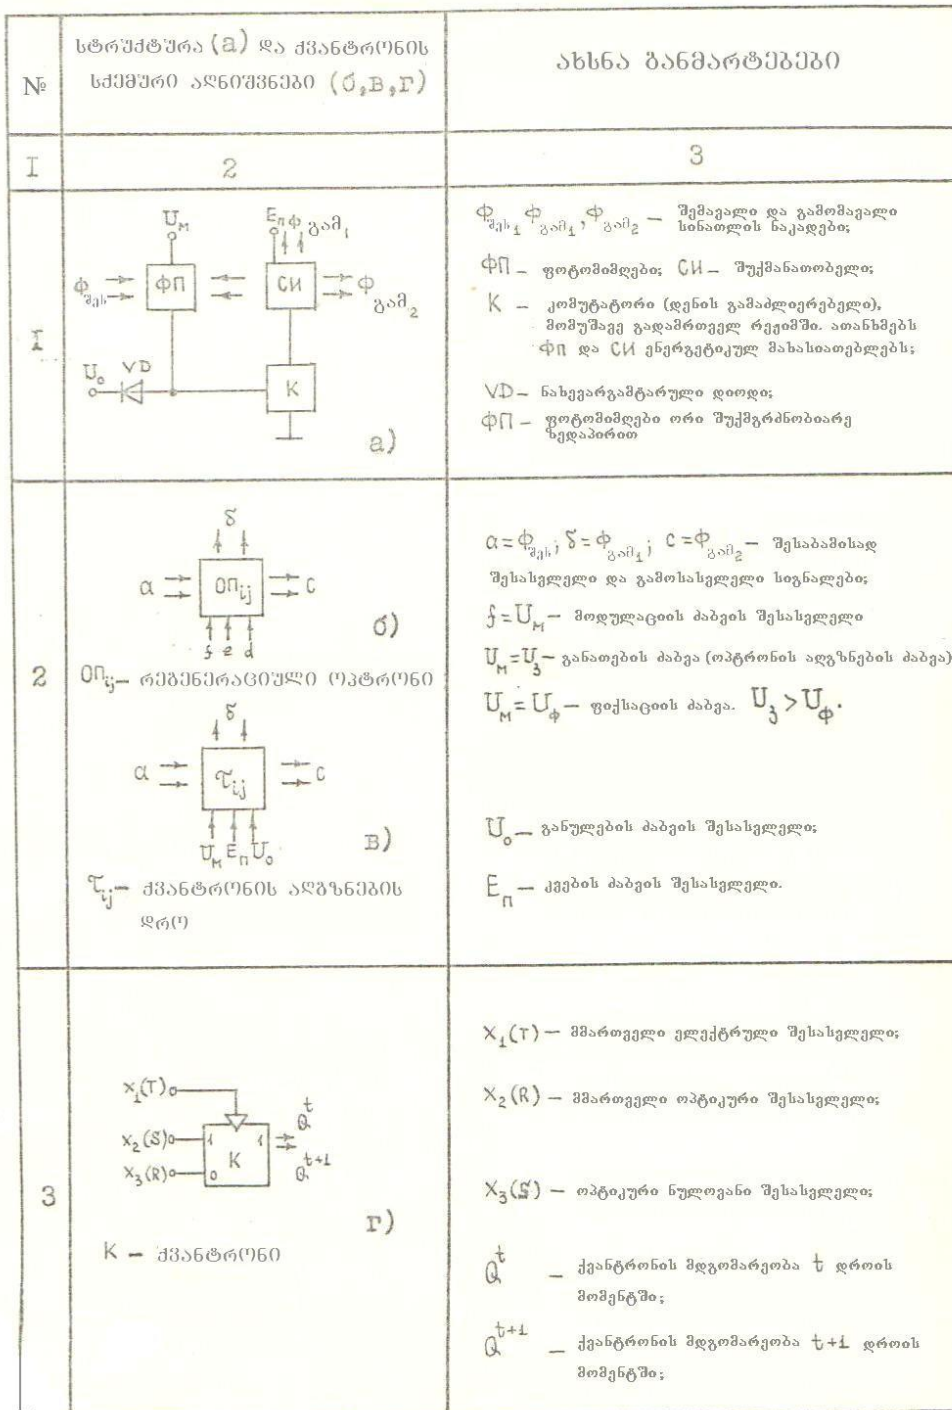 №
სტრუქტურა (а) და ქვანტრონის
სქემური აღნიშვნები (б,в,г)
ახსნა განმარტებები
I
2
3
I
Uм
Eп
Фგამ1
Фშეს
ФП
СИ
Фგამ2
U0
VD
К
а)
Фშეს1 Фგამ1, Фგამ2 — შემავალი და გამომავალი
სინათლის ნაკადები;
ФП — ფოტომიმღები; СИ — შუქმანათობელი;
К — კომუტატორი (დენის გამაძლიერებელი),
მომუშავე გადამრთველ რეჟიმში. ათანხმებს
ФП და СИ ენერგეტიკულ მახასიათებლებს;
VD — ნახევარგამტარული დიოდი;
ФП — ფოტომიმღები ორი შუქმგრძნობიარე
ზედაპირით
2
δ
a
ОПij
c
f e d
б)
ОПij — რეგენერაციული ოპტრონი
δ
a
τij
c
Uм Eп U0
в)
τij — ქვანტრონის აღგზნების
დრო
a=Фშეს; δ=Фგამ1; c=Фგამ2 — შესაბამისად
შესასვლელი და გამოსასვლელი სიგნალები;
f=Uм — მოდულაციის ძაბვის შესასვლელი
Uм=Uვ — განათების ძაბვა (ოპტრონის აღგზნების ძაბვა)
Uм=Uф — ფიქსაციის ძაბვა. Uვ>Uф.
U0 — განულების ძაბვის შესასვლელი;
Eп — კვების ძაბვის შესასვლელი.
3
x1(T)
x2(S)
x3(R)
1
1
К
0
Qt
Qt+1
г)
К — ქვანტრონი
x1(T) — მმართველი ელექტრული შესასვლელი;
x2(R) — მმართველი ოპტიკური შესასვლელი;
x3(S) — ოპტიკური ნულოვანი შესასვლელი;
Qt — ქვანტრონის მდგომარეობა t დროის
მომენტში;
Qt+1 — ქვანტრონის მდგომარეობა t+1 დროის
მომენტში;